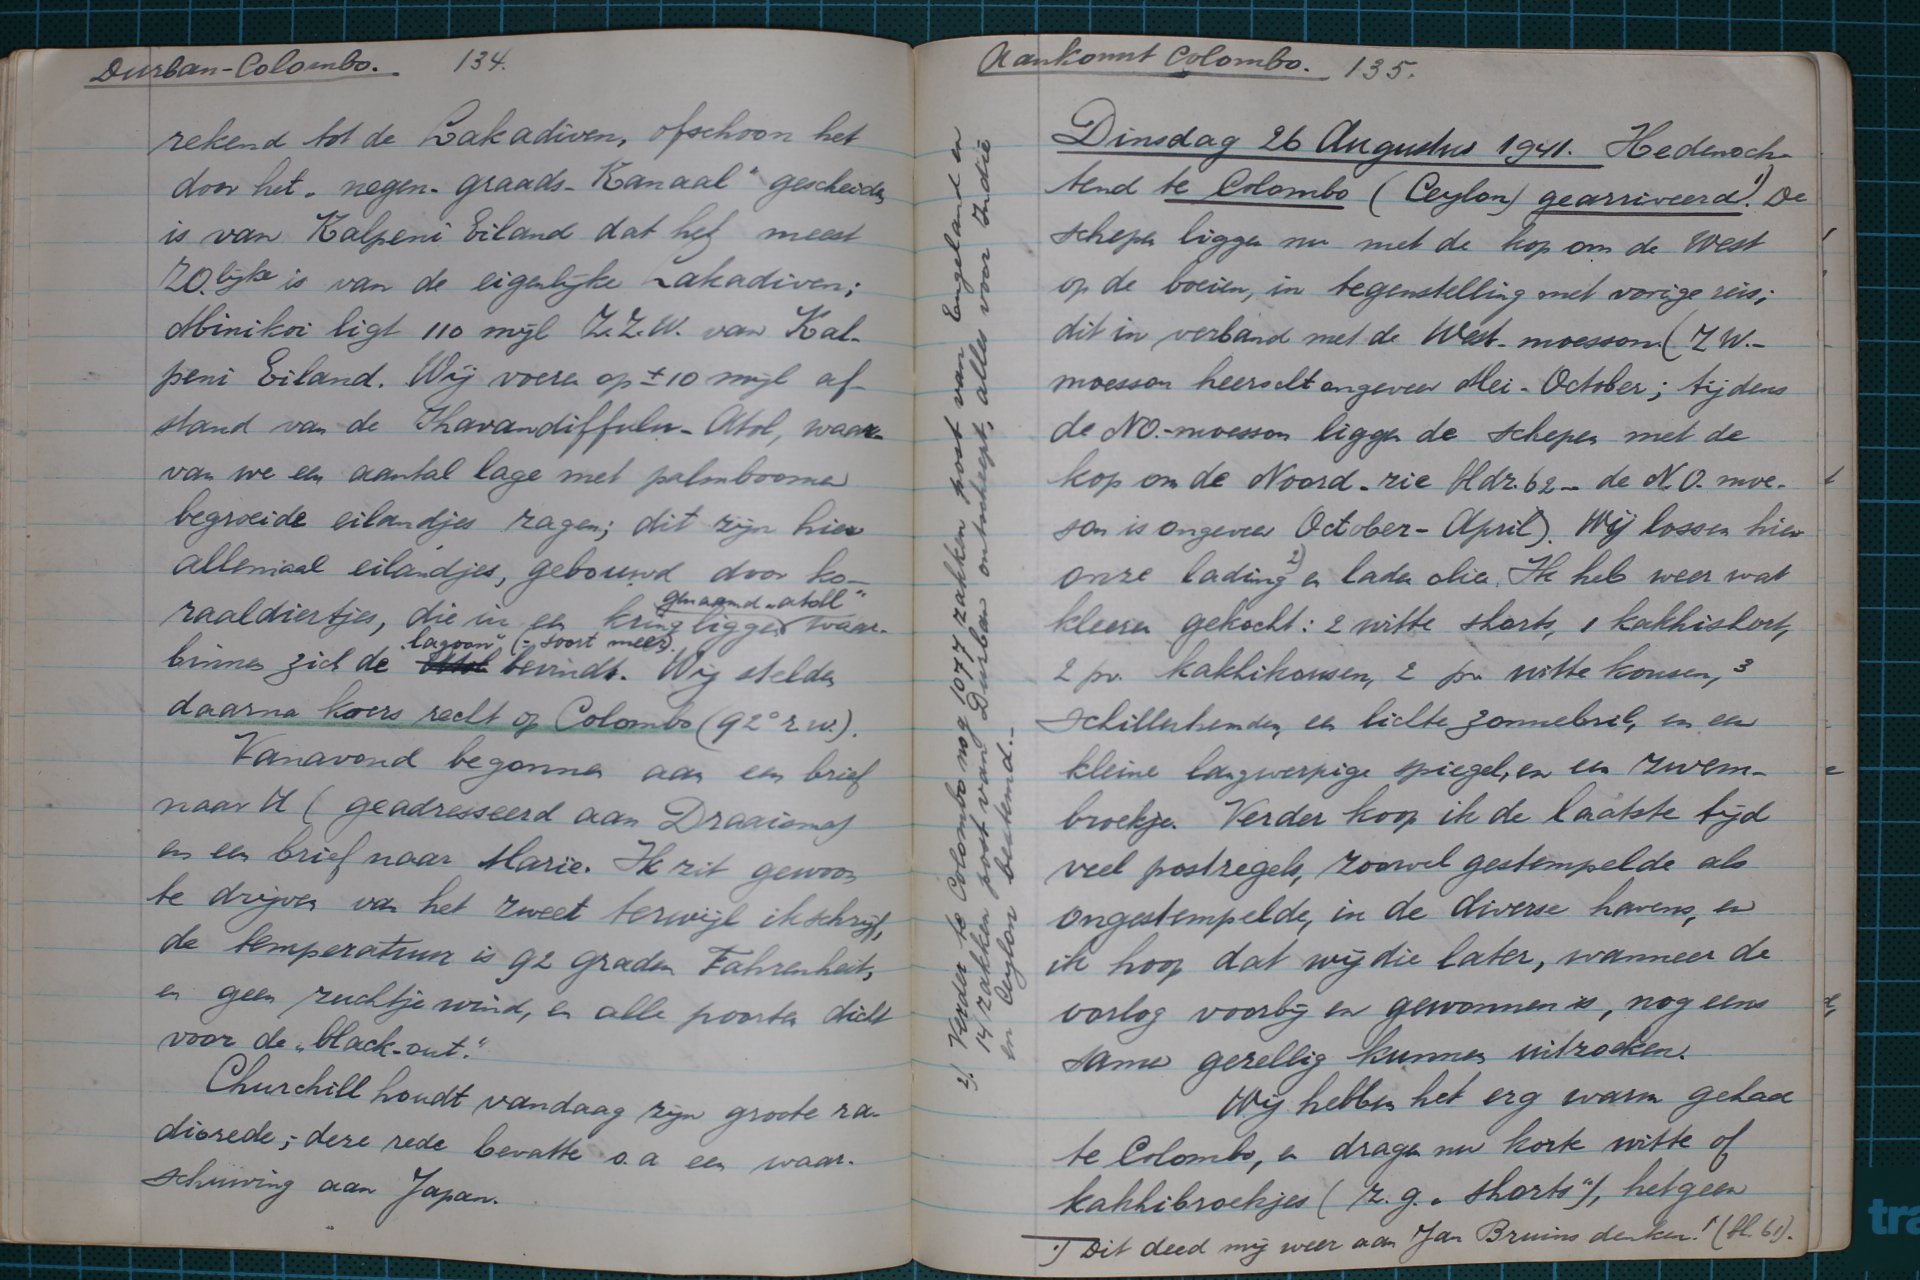 Durban-Colombo. 134.
rekend tot de Lakadiven, ofschoon het
door het „negen-graads-Kanaal" gescheiden
is van Kalpeni Eiland dat het meest
ZO.lijke is van de eigenlijke Lakadiven;
Minikoi ligt 110 mijl Z.Z.W. van Kal-
peni Eiland. Wij voeren op ± 10 mijl af-
stand van de Thavandiffulu-Atol, waar-
van we een aantal lage met palmboomen
begroeide eilandjes zagen; dit zijn hier
allemaal eilandjes, gebouwd door ko-
genaamd „atoll"
raaldiertjes, die in een kring liggen waar-
„lagoon" (= soort meer)
binnen zich de bevindt. Wij stelden
daarna koers recht op Colombo (92° r.w.).
Vanavond begonnen aan een brief
naar H (geadresseerd aan Draaisma)
en een brief naar Marie. Ik zit gewoon
te drijven van het zweet terwijl ik schrijf,
de temperatuur is 92 graden Fahrenheit,
en geen zuchtje wind, en alle poorten dicht
voor de „black-out."
Churchill houdt vandaag zijn groote ra-
diorede; deze rede bevatte o.a een waar-
schuwing aan Japan.
2). Verder te Colombo nog 1077 zakken post van Engeland en
14 zakken post van Durban ontscheept, alles voor Indië
en Ceylon bestemd.-
Aankomst Colombo. 135.
Dinsdag 26 Augustus 1941. Hedenoch-
tend te Colombo (Ceylon) gearriveerd 1). De
schepen liggen nu met de kop om de West
op de boeien, in tegenstelling met vorige reis;
dit in verband met de West-moesson. (ZW.-
moesson heerscht ongeveer Mei-October; tijdens
de NO.-moesson liggen de schepen met de
kop om de Noord-zie bldz. 62- de N.O. moe-
son is ongeveer October-April). Wij lossen hier
onze lading 2) en laden olie. Ik heb weer wat
kleeren gekocht: 2 witte shorts, 1 kakhishort,
2 pr. kakhikousen, 2 pr. witte kousen, 3
schillerhemden, een lichte zonnebril, en een
kleine langwerpige spiegel, en een zwem-
broekje. Verder koop ik de laatste tijd
veel postzegels, zoowel gestempelde als
ongestempelde, in de diverse havens, en
ik hoop dat wij die later, wanneer de
oorlog voorbij en gewonnen is, nog eens
samen gezellig kunnen uitzoeken.
Wij hebben het erg warm gehad
te Colombo, en dragen nu korte witte of
kakhibroekjes (z.g. „shorts"), hetgeen
1) Dit deed mij weer aan Jan Bruins denken! (bl. 61).